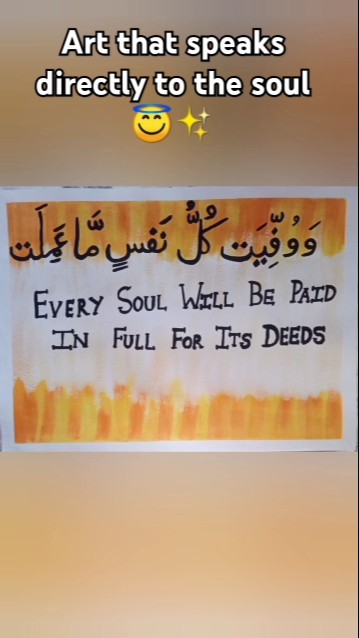 Art that speaks
directly to the soul
😇✨
وَوُفِّيَت كُلُّ نَفسٍ مَّا عَمِلَت
EVERY SOUL WILL BE PAID
IN FULL FOR ITS DEEDS